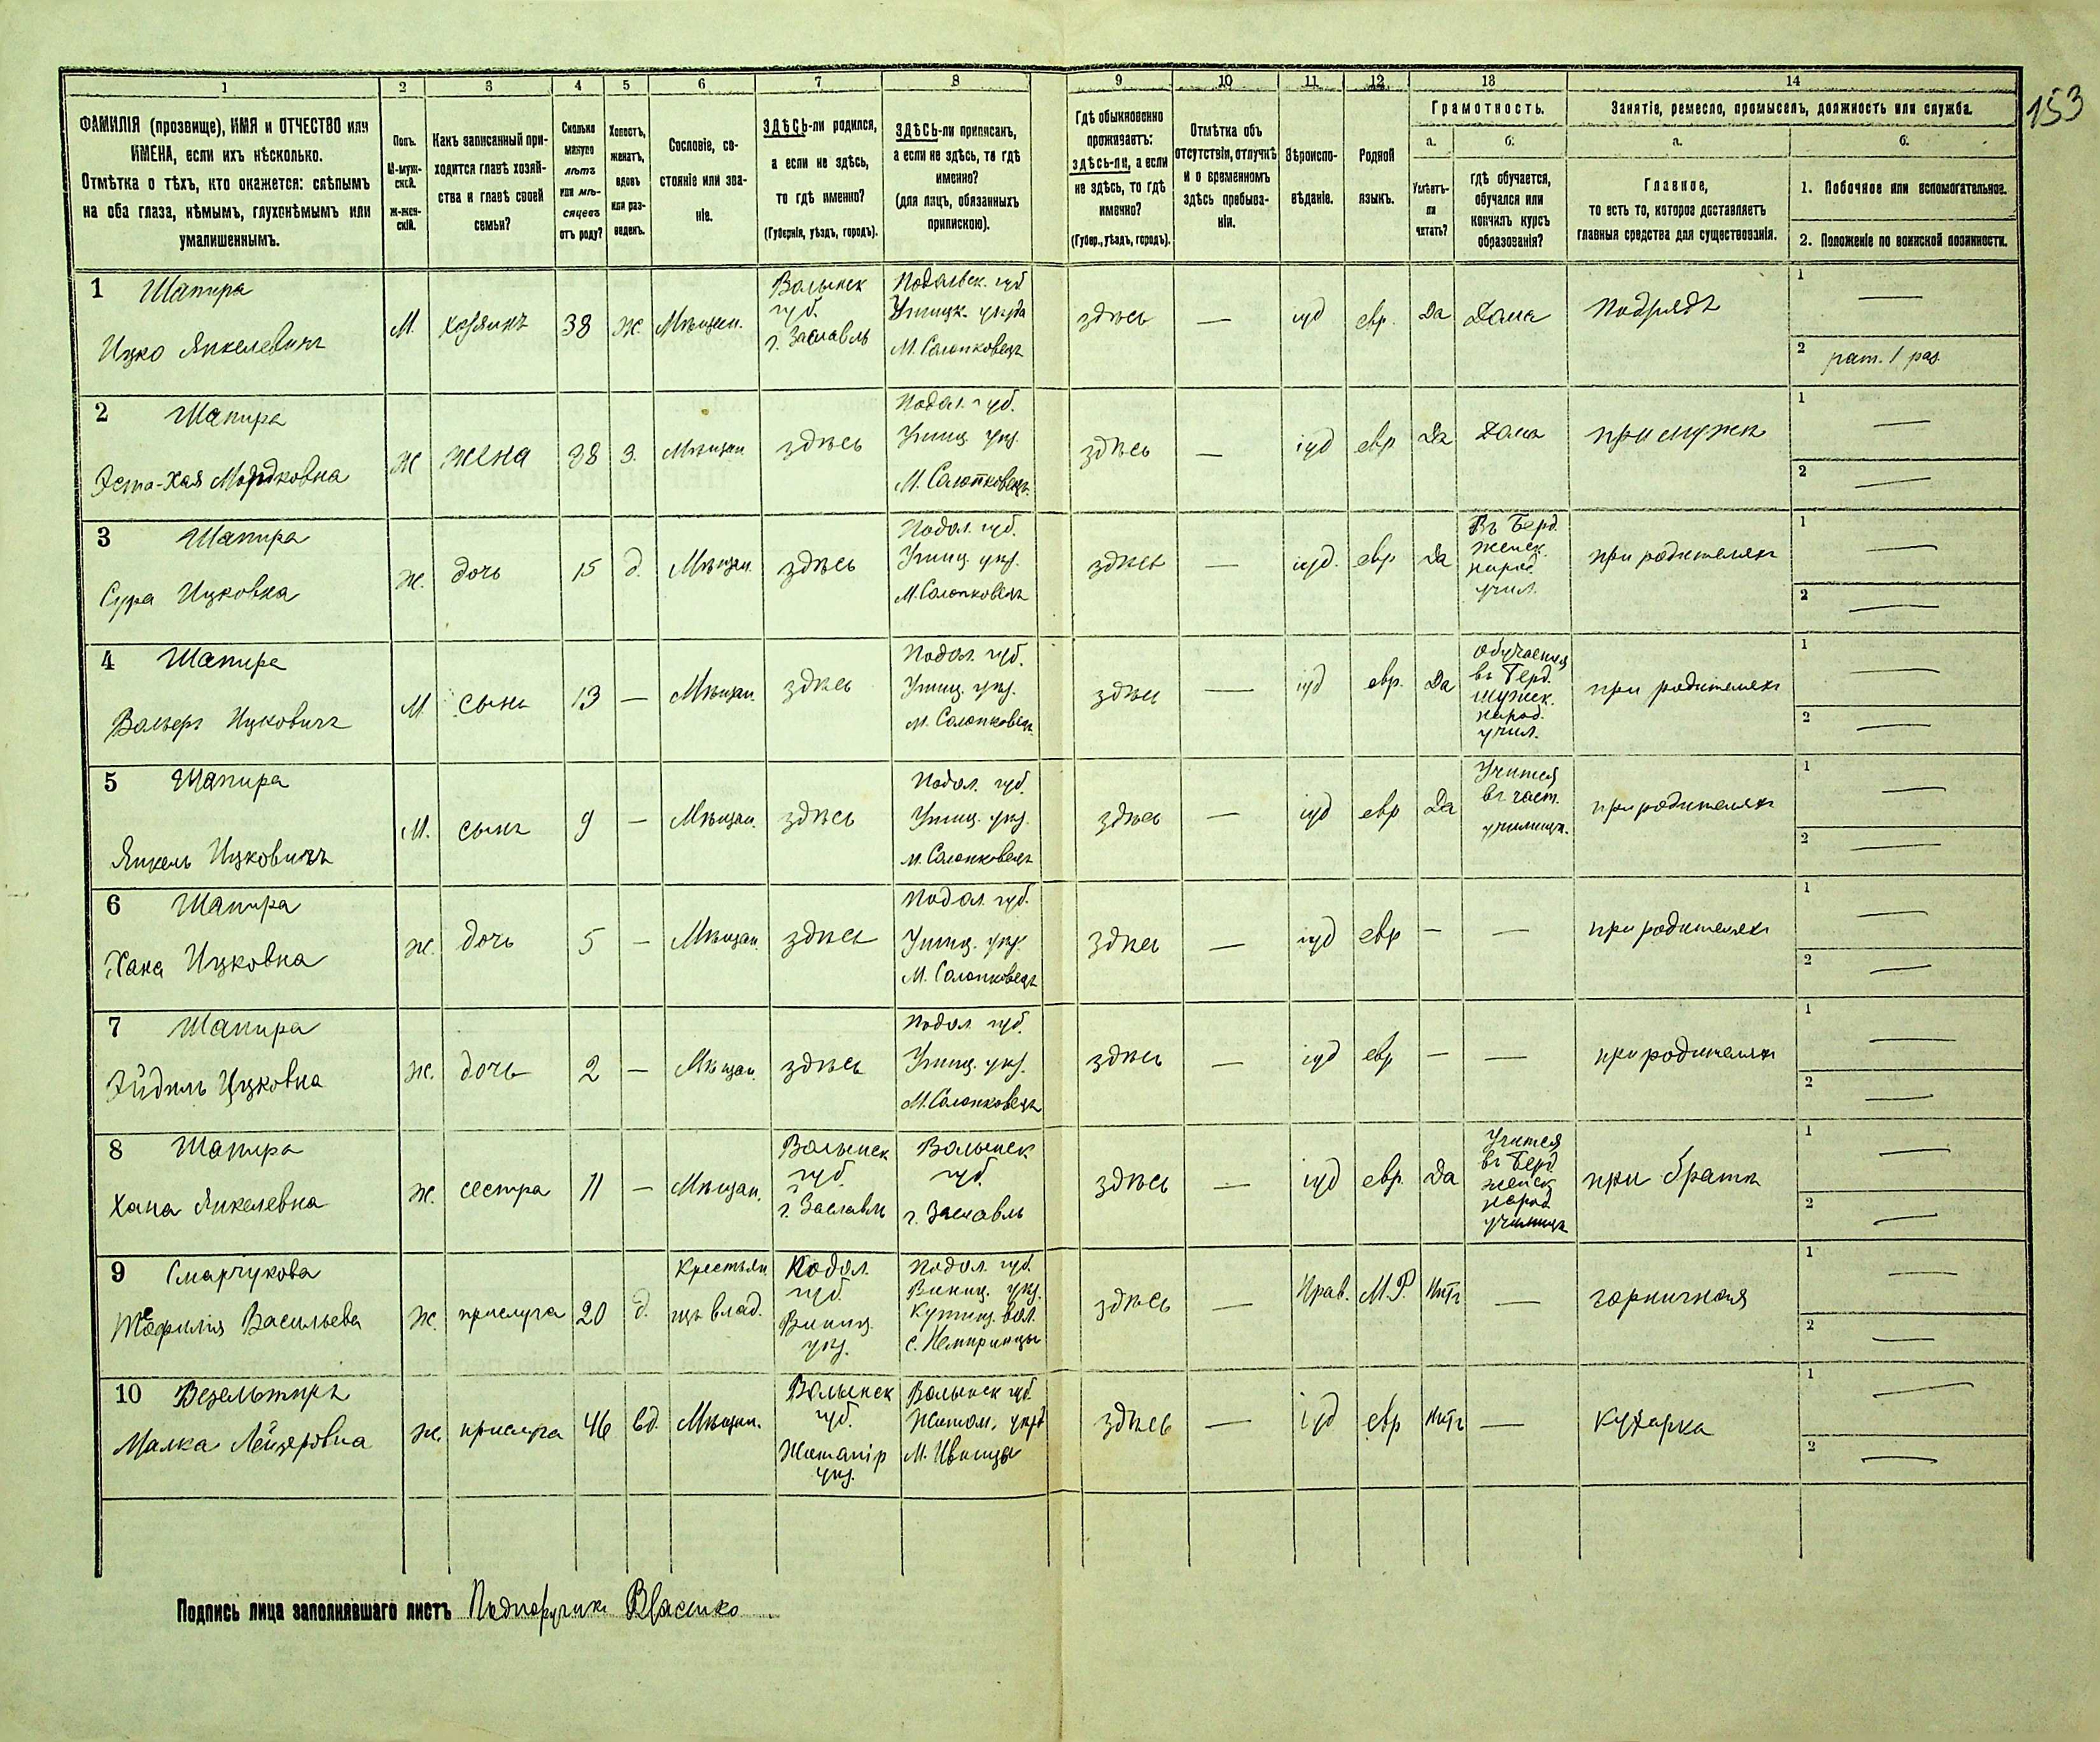 153
1 2 3 4 5 6 7 8 9 10 11 12 13 14
ФАМИЛІЯ (прозвище), ИМЯ и ОТЧЕСТВО или
ИМЕНА, если ихъ нѣсколько.
Отмѣтка о тѣхъ, кто окажется: слѣпымъ
на оба глаза, нѣмымъ, глухонѣмымъ или
умалишеннымъ.
Полъ.
М-муж-
ской.
Ж-жен-
скій.
Какъ записанный при-
ходится главѣ хозяй-
ства и главѣ своей
семьи?
Сколько
минуло
лѣтъ
или мѣ-
сяцевъ
отъ роду?
Холостъ,
женатъ,
вдовъ
или раз-
веденъ.
Сословіе, со-
стояніе или зва-
ніе.
ЗДѢСЬ-ли родился,
а если не здѣсь,
то гдѣ именно?
(Губернія, уѣздъ, городъ).
ЗДѢСЬ-ли приписанъ,
а если не здѣсь, то гдѣ
именно?
(для лицъ, обязанныхъ
припискою).
Гдѣ обыкновенно
проживаетъ:
здѣсь-ли, а если
не здѣсь, то гдѣ
именно?
(Губер., уѣздъ, городъ).
Отмѣтка объ
отсутствіи, отлучкѣ
и о временномъ
здѣсь пребыва-
ніи.
Вѣроиспо-
вѣданіе.
Родной
языкъ.
Грамотность.
а.
Умѣетъ-
ли
читать?
б.
гдѣ обучается,
обучался или
кончилъ курсъ
образованія?
Занятіе, ремесло, промыселъ, должность или служба.
а.
Главное,
то есть то, которое доставляетъ
главныя средства для существованія.
б.
1. Побочное или вспомогательное.
2. Положеніе по воинской повинности.
1 Шапира
Ицко Янкелевичъ
М. хозяинъ 38 ж. Мѣщан.
Волынск
губ.
г. Заславль
Подольск. губ
Ушицк. уѣзда
М. Солопковецъ
здѣсь — іуд евр. Да Дома Подрядъ
1 —
2 рат. 1 раз.
2 Шапира
Эста-Хая Мордковна
Ж жена 38 з. Мѣщан здѣсь
Подол. губ.
Ушиц. уѣз.
М. Солопковецъ
здѣсь — іуд евр Да Дома при мужѣ
1 —
2 —
3 Шапира
Сура Ицковна
ж. дочь 15 д. Мѣщан. здѣсь
Подол. губ.
Ушиц. уѣз.
М. Солопковецъ
здѣсь — іуд. евр Да
Въ Берд.
женск.
народ
учил.
при родителяхъ
1 —
2 —
4 Шапира
Вольфъ Ицковичъ
М. сынъ 13 — Мѣщан. здѣсь
Подол. губ.
Ушиц. уѣз.
м. Солопковец.
здѣсь — іуд евр. Да
обучается
въ Берд.
мужск.
народ.
учил.
при родителяхъ
1 —
2 —
5 Шапира
Янкель Ицковичъ
М. сынъ 9 — Мѣщан. здѣсь
Подол. губ.
Ушиц. уѣз.
м. Солопковецъ
здѣсь — іуд евр Да
Учится
въ част.
училищѣ.
при родителяхъ
1 —
2 —
6 Шапира
Хана Ицковна
ж. дочь 5 — Мѣщан. здѣсь
Подол. губ.
Ушиц. уѣз.
М. Солопковецъ
здѣсь — іуд евр — — при родителяхъ
1 —
2 —
7 Шапира
Эйдель Ицковна
ж. дочь 2 — Мѣщан. здѣсь
Подол. губ.
Ушиц. уѣз.
М. Солопковецъ
здѣсь — іуд евр — — при родителяхъ
1 —
2 —
8 Шапира
Хана Янкелевна
ж. сестра 11 — Мѣщан.
Волынск
губ.
г. Заславль
Волынск
губ.
г. Заславль
здѣсь — іуд евр. Да
Учится
въ Берд.
женск
народ
училищѣ
при братѣ
1 —
2 —
9 Смарчукова
Теофилія Васильева
Ж. прислуга 20 д.
Крестьян
изъ влад.
Подол.
губ.
Виниц.
уѣз.
Подол. губ.
Виниц. уѣз.
вол.
с. Немиринцы
здѣсь — Прав. М.Р. Нѣтъ — горничная
1 —
2 —
10 Везельтиръ
Малка Лейзеровна
ж. прислуга 46 вд. Мѣщан.
Волынск
губ.
Житомір
уѣз.
Волынск губ.
Житом. уѣзд
М. Ивницы
здѣсь — іуд евр Нѣтъ — Кухарка
1 —
2 —
Подпись лица заполнявшаго листъ Подпоручикъ Власенко